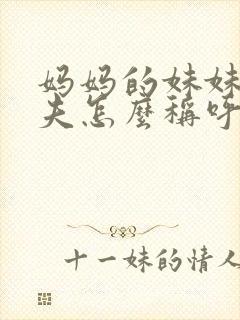 妈妈的妹妹
夫怎麼稱呼
十一妹的情人